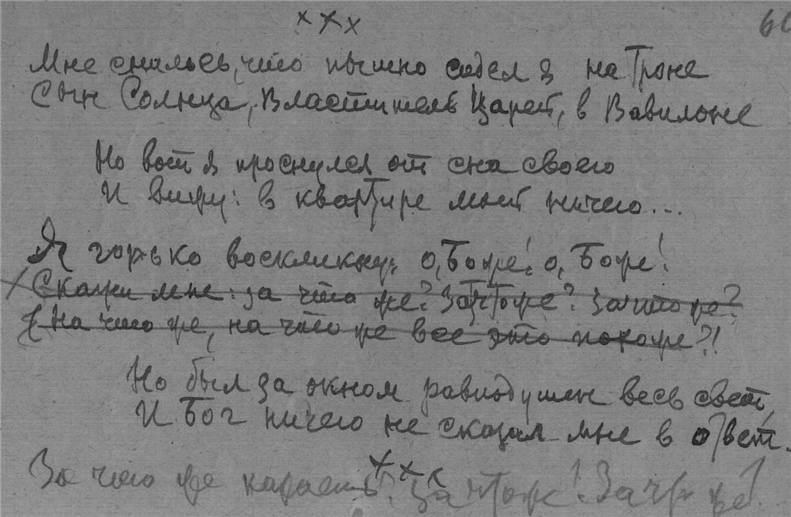 × × ×
60
Мне снилось, что пышно сидел я на троне
Сын Солнца, Властитель Царей, в Вавилоне
Но вот я проснулся от сна своего
И вижу: в квартире моей ничего...
Я горько воскликнул: о, Боже! о, Боже!
Скажи мне: за что же? За что же? За что же?
На что же, на что же все это похоже?!
Но был за окном равнодушен весь свет,
И Бог ничего не сказал мне в ответ.
× × ×
За что же караешь? За что же! За что же?